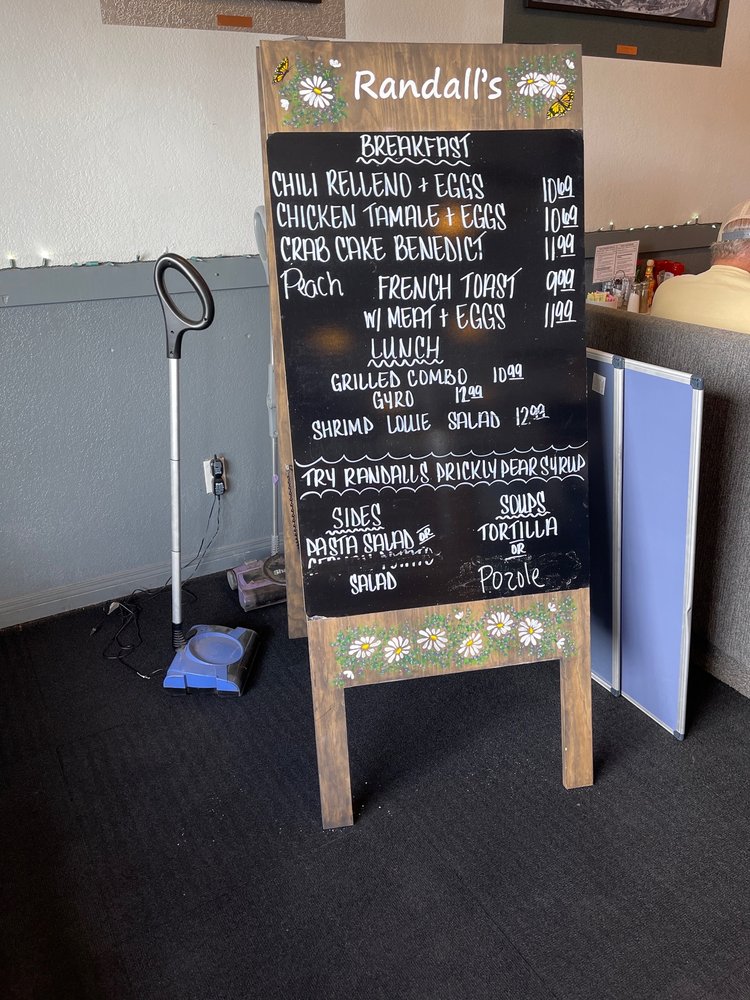 Randall's
BREAKFAST
CHILI RELLENO + EGGS 10.69
CHICKEN TAMALE + EGGS 10.69
CRAB CAKE BENEDICT 11.99
Peach FRENCH TOAST 9.99
W/ MEAT + EGGS 11.99
LUNCH
GRILLED COMBO 10.99
GYRO 12.99
SHRIMP LOUIE SALAD 12.99
TRY RANDALLS PRICKLY PEAR SYRUP
SIDES
PASTA SALAD OR
SALAD
SOUPS
TORTILLA
OR
Pozole